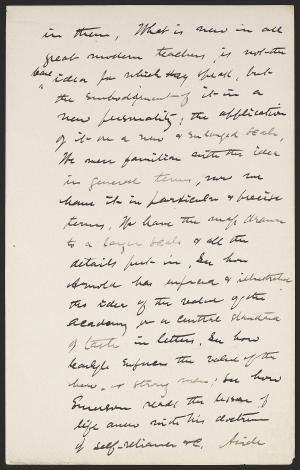 in them. What is new in all
great modern teachers, is not the
bare idea for which they speak, but
the embodiment of it in a
new personality; the application
of it on a new & enlarged scale.
We were familiar with the idea
in general terms, now we
have it in particular & precise
terms. We have the map drawn
to a larger scale & all the
details put in. See how
Arnold has enforced & illustrated
the idea of the value of the
academy or a central standard
of taste in letters. See how
Carlyle enforces the value of the
hero, or strong man; see how
Emerson reads the lesson of
life anew with his doctrine
of self-reliance &c.